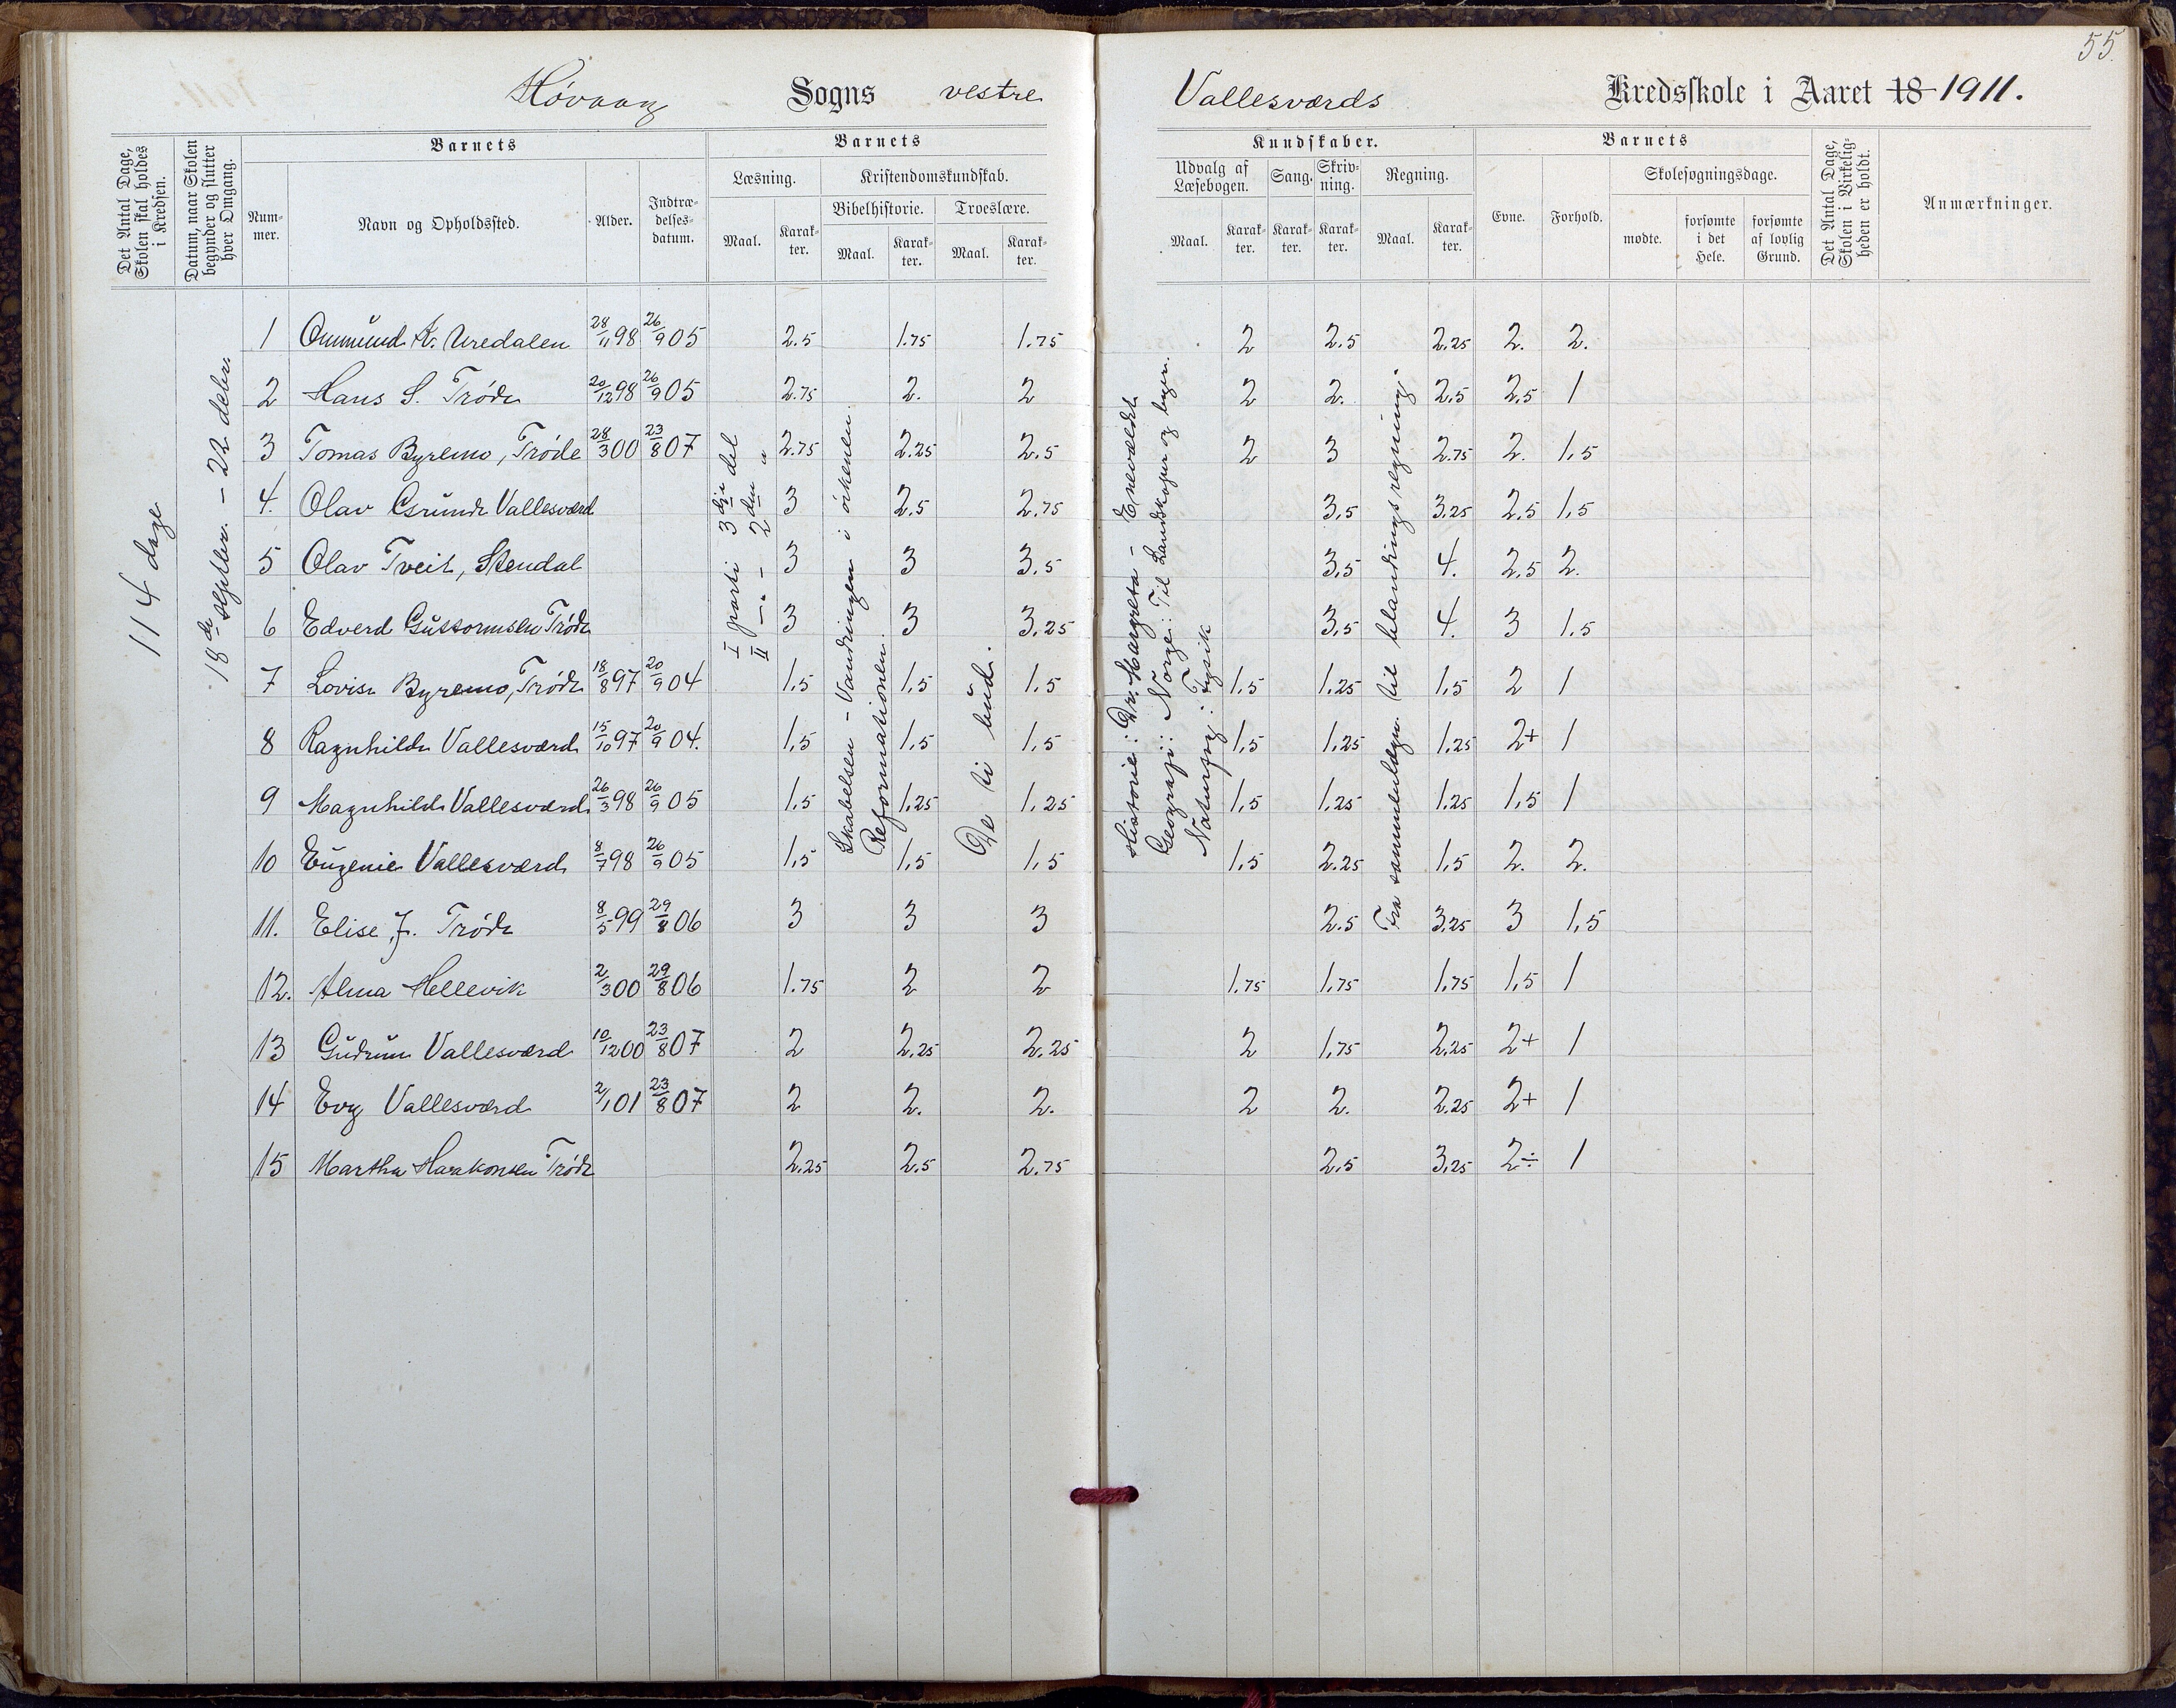 55.
Høvaag Sogns vestre Vallesværds Kredsskole i Aaret 18 1911.
Det Antal Dage, Skolen skal holdes i Kredsen.
Datum, naar Skolen begynder og slutter hver Omgang.
Barnets
Nummer.
Navn og Opholdssted.
Alder.
Indtrædelsesdatum.
Barnets Kundskaber.
Læsning.
Maal.
Karakter.
Kristendomskundskab.
Bibelhistorie.
Maal.
Karakter.
Troeslære.
Maal.
Karakter.
Udvalg af Læsebogen.
Maal.
Karakter.
Sang.
Karakter.
Skrivning.
Karakter.
Regning.
Maal.
Karakter.
Barnets
Evne.
Forhold.
Skolesøgningsdage.
mødte.
forsømte i det Hele.
forsømte af lovlig Grund.
Det Antal Dage, Skolen i Virkeligheden er holdt.
Anmærkninger.
114 dage
18de septbr. - 22 debr.
I parti 3dje del
II -"- 2den "
Skabelsen - Vandringen i ørkenen.
Reformationen.
De ti bud.
Historie: Dr. Margreta - Eneveldet
Geografi: Norge: Til Landskaper og byer.
Naturfag: Fysik
Fra sammenlægn. til blandingsregning.
1 Ommund K. Uredalen 28/11 98 26/9 05 2.5 1.75 1.75 2 2.5 2.25 2. 2.
2 Hans S. Trøde 20/12 98 26/9 05 2.75 2. 2 2 2. 2,5 2,5 1
3 Tomas Byremo, Trøde 28/3 00 23/8 07 2.75 2.25 2.5 2 3 2.75 2. 1,5
4. Olav Gsrunde Vallesværd 3 2,5 2.75 3,5 3.25 2.5 1,5
5 Olav Tveit, Stendal 3 3 3.5 3,5 4. 2,5 2.
6 Edverd Guttormsen Trøde 3 3 3.25 3,5 4. 3 1.5
7 Lovise Byremo, Trøde 18/8 97 20/9 04 1,5 1,5 1.5 1,5 1.25 1,5 2 1
8 Ragnhilde Vallesværd 15/10 97 20/9 04. 1,5 1,5 1,5 1,5 1.25 1.25 2+ 1
9 Magnhilde Vallesværd 26/3 98 26/9 05 1,5 1,25 1,25 1,5 1.25 1.25 1,5 1
10 Eugenie Vallesværd 8/7 98 26/9 05 1,5 1,5 1,5 1,5 2.25 1,5 2. 2.
11. Elise J. Trøde 8/5 99 29/8 06 3 3 3 2.5 3.25 3 1,5
12. Alma Hellevik 2/3 00 29/8 06 1.75 2 2 1.75 1,75 1,75 1,5 1
13 Gudrun Vallesværd 10/12 00 23/8 07 2 2,25 2.25 2 1,75 2,25 2+ 1
14 Evy Vallesværd 2/1 01 23/8 07 2 2. 2. 2 2. 2.25 2+ 1
15 Martha Haakonsen Trøde 2.25 2.5 2.75 2,5 3,25 2÷ 1